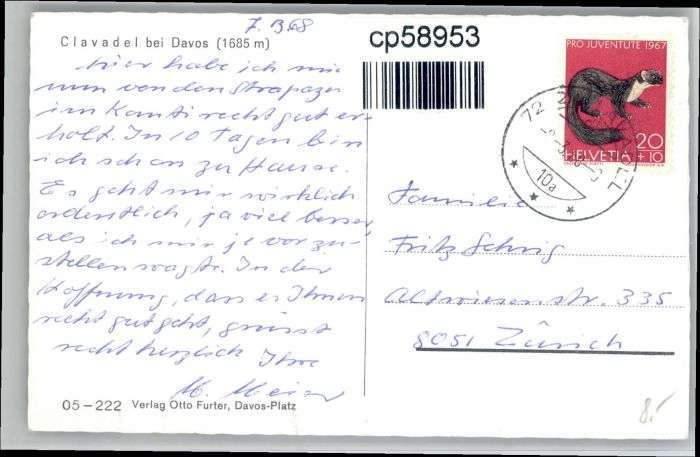 7. 3. 68
Clavadel bei Davos (1685 m)
cp58953
Hier habe ich mich
nun von den Strapazen
im Kanti recht gut er-
holt. In 10 Tagen bin
ich schon zu Hause.
Es geht mir wirklich
ordentlich, ja viel besser,
als ich mir je vorzu-
stellen wagte. In der
Hoffnung, dass es Ihnen
recht gut geht, grüsst
recht herzlich Ihre
M. Meier
05-222 Verlag Otto Furter, Davos-Platz
PRO JUVENTUTE 1967
20
+10
HELVETIA
72
10a
Familie
Fritz Gehrig
Altwiesenstr. 335
8051 Zürich
8.-